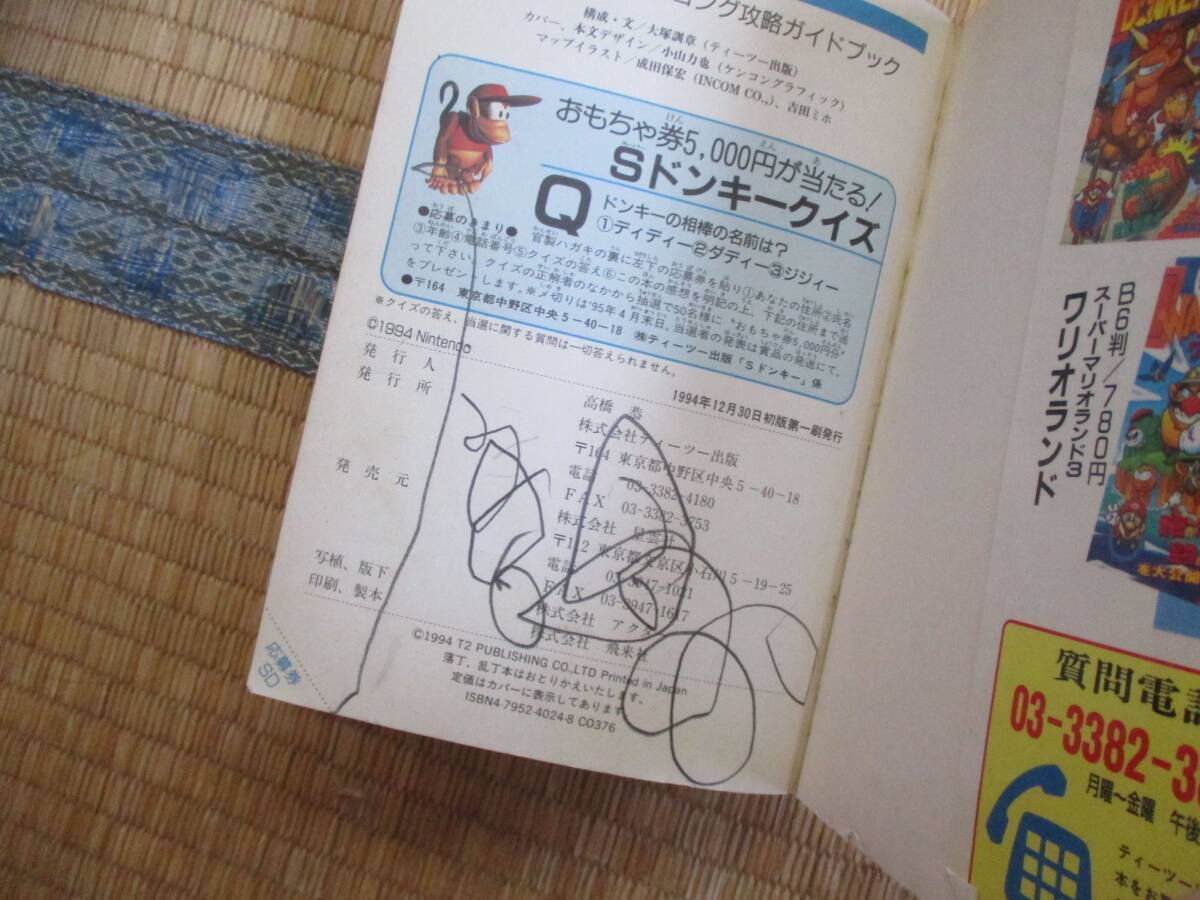 ング攻略ガイドブック
構成・文／大塚訓章(ティーツー出版)
カバー、本文デザイン／小山力也(ケンコングラフィック)
マップイラスト／成田保宏(INCOM CO.,)、吉田ミホ
おもちゃ券5,000円が当たる!
Sドンキークイズ
Q
ドンキーの相棒の名前は?
①ディディー②ダディー③ジジィー
●応募のきまり●
官製ハガキの裏に左下の応募券を貼り①あなたの住所②氏名
③年齢④電話番号⑤クイズの答え⑥この本の感想を明記の上、下記の住所まで送
って下さい。クイズの正解者のなかから抽選で50名様に"おもちゃ券5,000円分"
をプレゼントします。※〆切りは'95年4月末日。当選者の発表は賞品の発送にて。
●〒164 東京都中野区中央5-40-18 ㈱ティーツー出版「Sドンキー」係
※クイズの答え、当選に関する質問は一切答えられません。
©1994 Nintendo
1994年12月30日初版第一刷発行
発行人 高橋 恭
発行所 株式会社ティーツー出版
〒164 東京都中野区中央5-40-18
電話 03-3382-4180
FAX 03-3382-3753
発売元 株式会社 星雲社
〒112 東京都文京区小石川5-19-25
電話 03-3947-1021
FAX 03-3947-1617
写植、版下 株式会社 アクタ
印刷、製本 株式会社 飛来社
©1994 T2 PUBLISHING CO.,LTD Printed in Japan
落丁、乱丁本はおとりかえいたします。
定価はカバーに表示してあります。
ISBN4-7952-4024-8 C0376
応募券
SD
B6判／780円
スーパーマリオランド3
ワリオランド
質問電話
03-3382-3
月曜〜金曜 午後
ティーツー
本をお